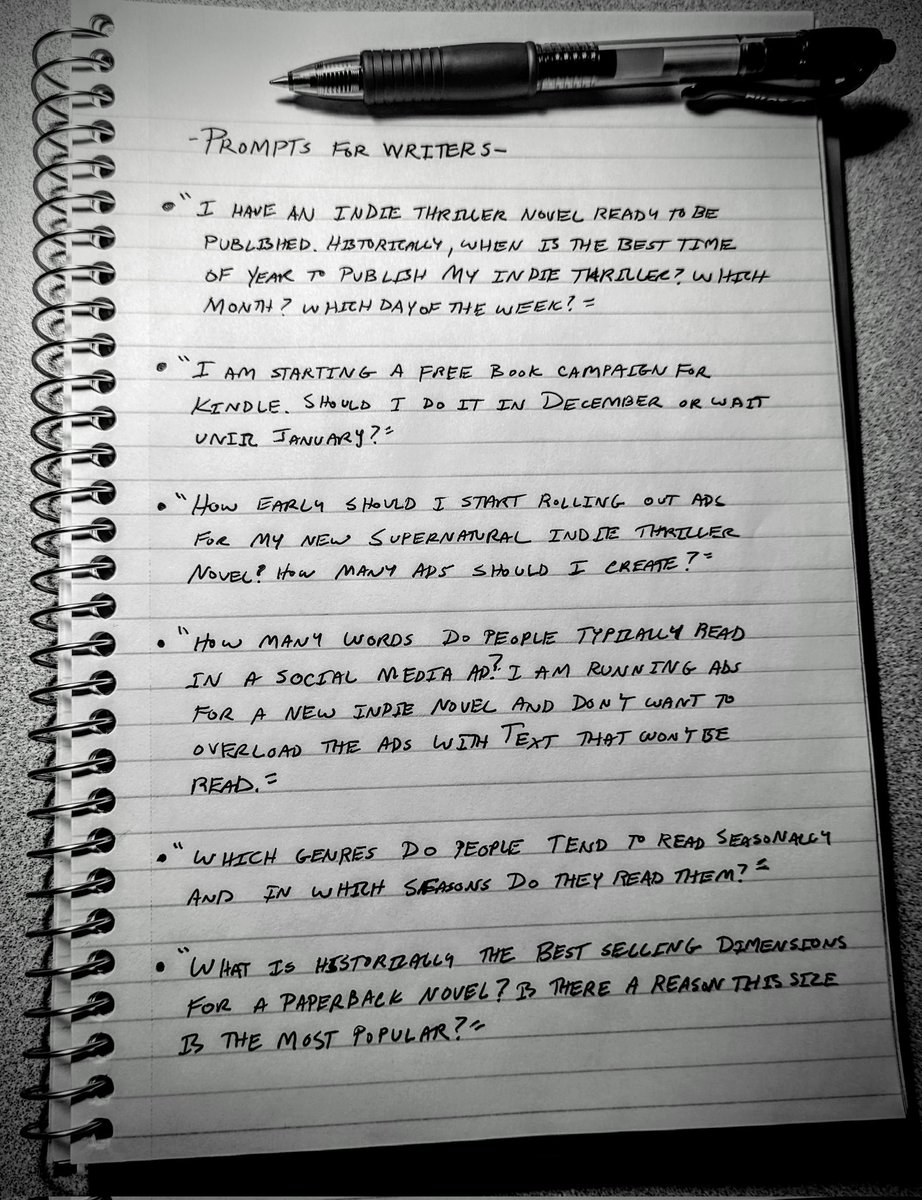 -PROMPTS FOR WRITERS-
• "I HAVE AN INDIE THRILLER NOVEL READY TO BE
PUBLISHED. HISTORICALLY, WHEN IS THE BEST TIME
OF YEAR TO PUBLISH MY INDIE THRILLER? WHICH
MONTH? WHICH DAY OF THE WEEK?"
• "I AM STARTING A FREE BOOK CAMPAIGN FOR
KINDLE. SHOULD I DO IT IN DECEMBER OR WAIT
UNTIL JANUARY?"
• "HOW EARLY SHOULD I START ROLLING OUT ADS
FOR MY NEW SUPERNATURAL INDIE THRILLER
NOVEL? HOW MANY ADS SHOULD I CREATE?"
• "HOW MANY WORDS DO PEOPLE TYPICALLY READ
IN A SOCIAL MEDIA AD? I AM RUNNING ADS
FOR A NEW INDIE NOVEL AND DON'T WANT TO
OVERLOAD THE ADS WITH TEXT THAT WON'T BE
READ."
• "WHICH GENRES DO PEOPLE TEND TO READ SEASONALLY
AND IN WHICH SEASONS DO THEY READ THEM?"
• "WHAT IS HISTORICALLY THE BEST SELLING DIMENSIONS
FOR A PAPERBACK NOVEL? IS THERE A REASON THIS SIZE
IS THE MOST POPULAR?"